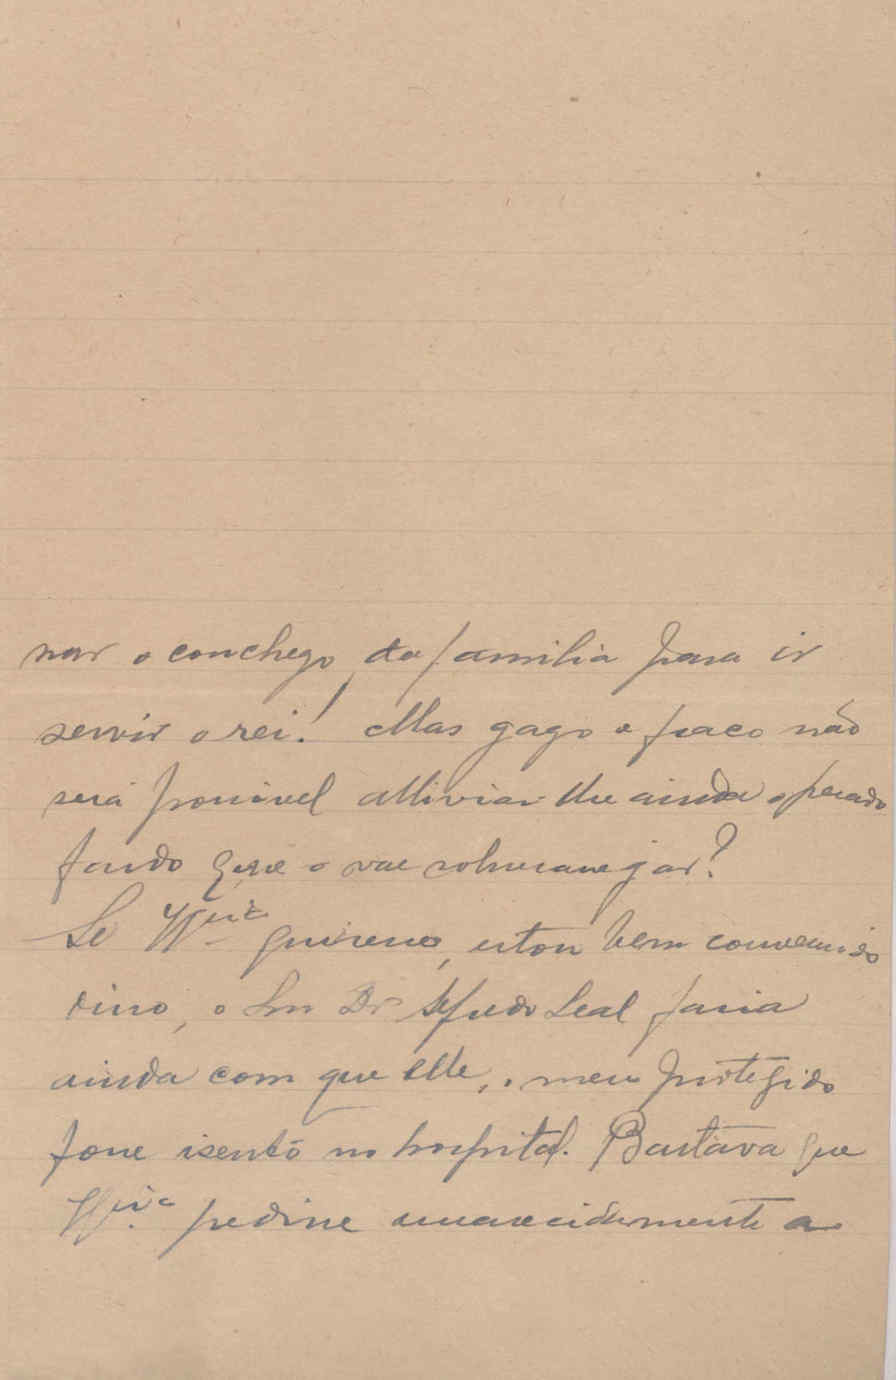 nar o conchego da familia para ir
servir o rei! Mas gago e fraco não
será possivel alliviar-lhe ainda o pesado
fardo que o vae sobrecarregar?
Se V.Exª quizesse, estou bem convencido
disso, o Snr Dr Leal faria
ainda com que elle, o meu protegido
fosse isento no hospital. Bastava que
V.Exª pedisse encarecidamente a